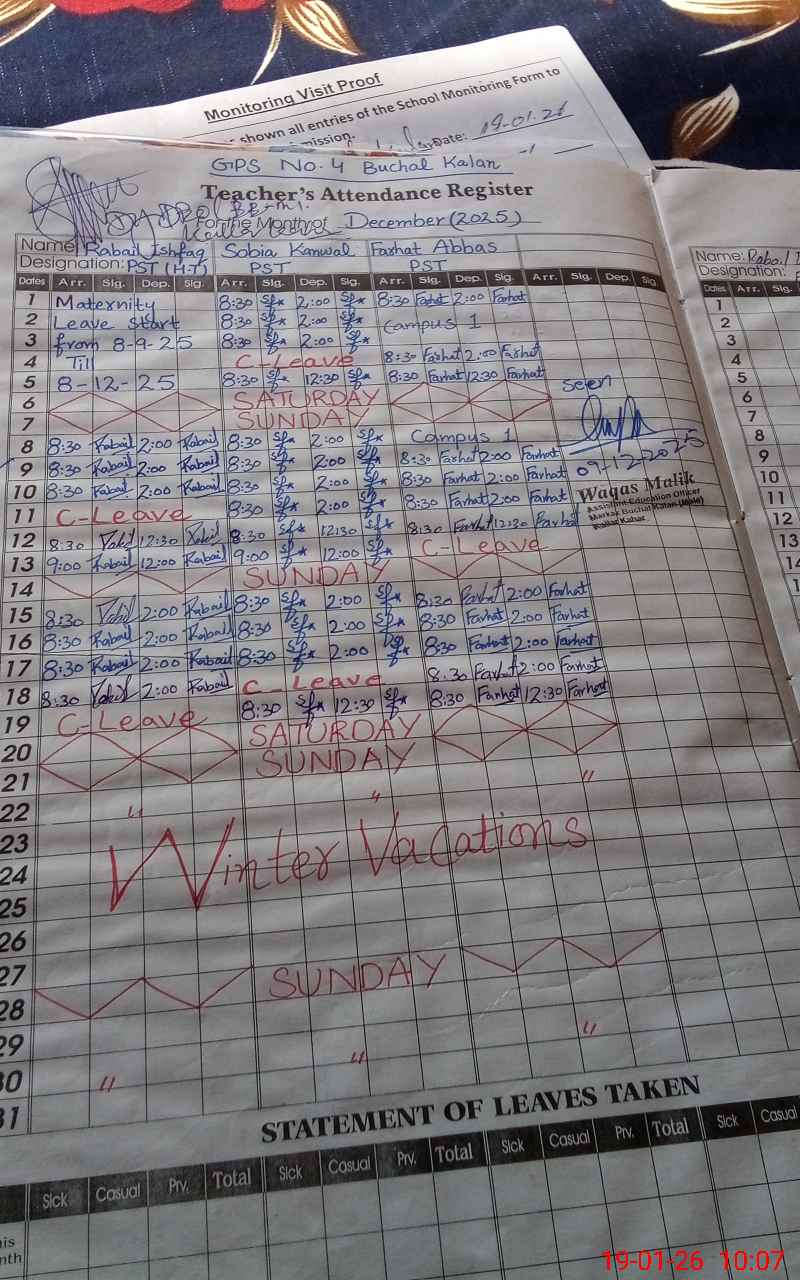 Monitoring Visit Proof
shown all entries of the School Monitoring Form to
mission.
Date: 19-01-26
GPS No. 4 Buchal Kalan
Teacher's Attendance Register
For The Month of December (2025)
Name Rabail Ishfaq Sobia Kanwal Farhat Abbas
Designation: PST (H.T) PST PST
Dates Arr. Sig. Dep. Sig. Arr. Sig. Dep. Sig. Arr. Sig. Dep. Sig. Arr. Sig. Dep. Sig
1 Maternity 8:30 2:00 8:30 Farhat 2:00 Farhat
2 Leave start 8:30 2:00 Campus 1
3 from 8-9-25 8:30 2:00
4 Till C-Leave 8:30 Farhat 2:00 Farhat
5 8-12-25 8:30 12:30 8:30 Farhat 12:30 Farhat
6 SATURDAY
7 SUNDAY
seen
8 8:30 Rabail 2:00 Rabail 8:30 2:00 Campus 1
9 8:30 Rabail 2:00 Rabail 8:30 2:00 8:30 Farhat 2:00 Farhat
09-12-2025
10 8:30 Rabail 2:00 Rabail 8:30 2:00 8:30 Farhat 2:00 Farhat
Waqas Malik
Assistant Education Officer
Markaz Buchal Kalan (Male)
11 C-Leave 8:30 2:00 8:30 Farhat 2:00 Farhat
12 8:30 12:30 8:30 12:30 8:30 Farhat 12:30 Farhat
13 9:00 Rabail 12:00 Rabail 9:00 12:00 C-Leave
14 SUNDAY
15 8:30 2:00 Rabail 8:30 2:00 8:30 Farhat 2:00 Farhat
16 8:30 Rabail 2:00 Rabail 8:30 2:00 8:30 Farhat 2:00 Farhat
17 8:30 Rabail 2:00 Rabail 8:30 2:00 8:30 Farhat 2:00 Farhat
18 8:30 2:00 Rabail C-Leave 8:30 Farhat 2:00 Farhat
19 C-Leave 8:30 12:30 8:30 Farhat 12:30 Farhat
20 SATURDAY
21 SUNDAY
22 " " "
23
24 Winter Vacations
25
26
27
28 SUNDAY
29
30 " " "
31
STATEMENT OF LEAVES TAKEN
Sick Casual Prv. Total Sick Casual Prv. Total Sick Casual Prv. Total Sick Casual
his
nth
Name: Rabail I
Designation:
Dates Arr. Sig.
1
2
3
4
5
6
7
8
9
10
11
12
13
14
19-01-26 10:07